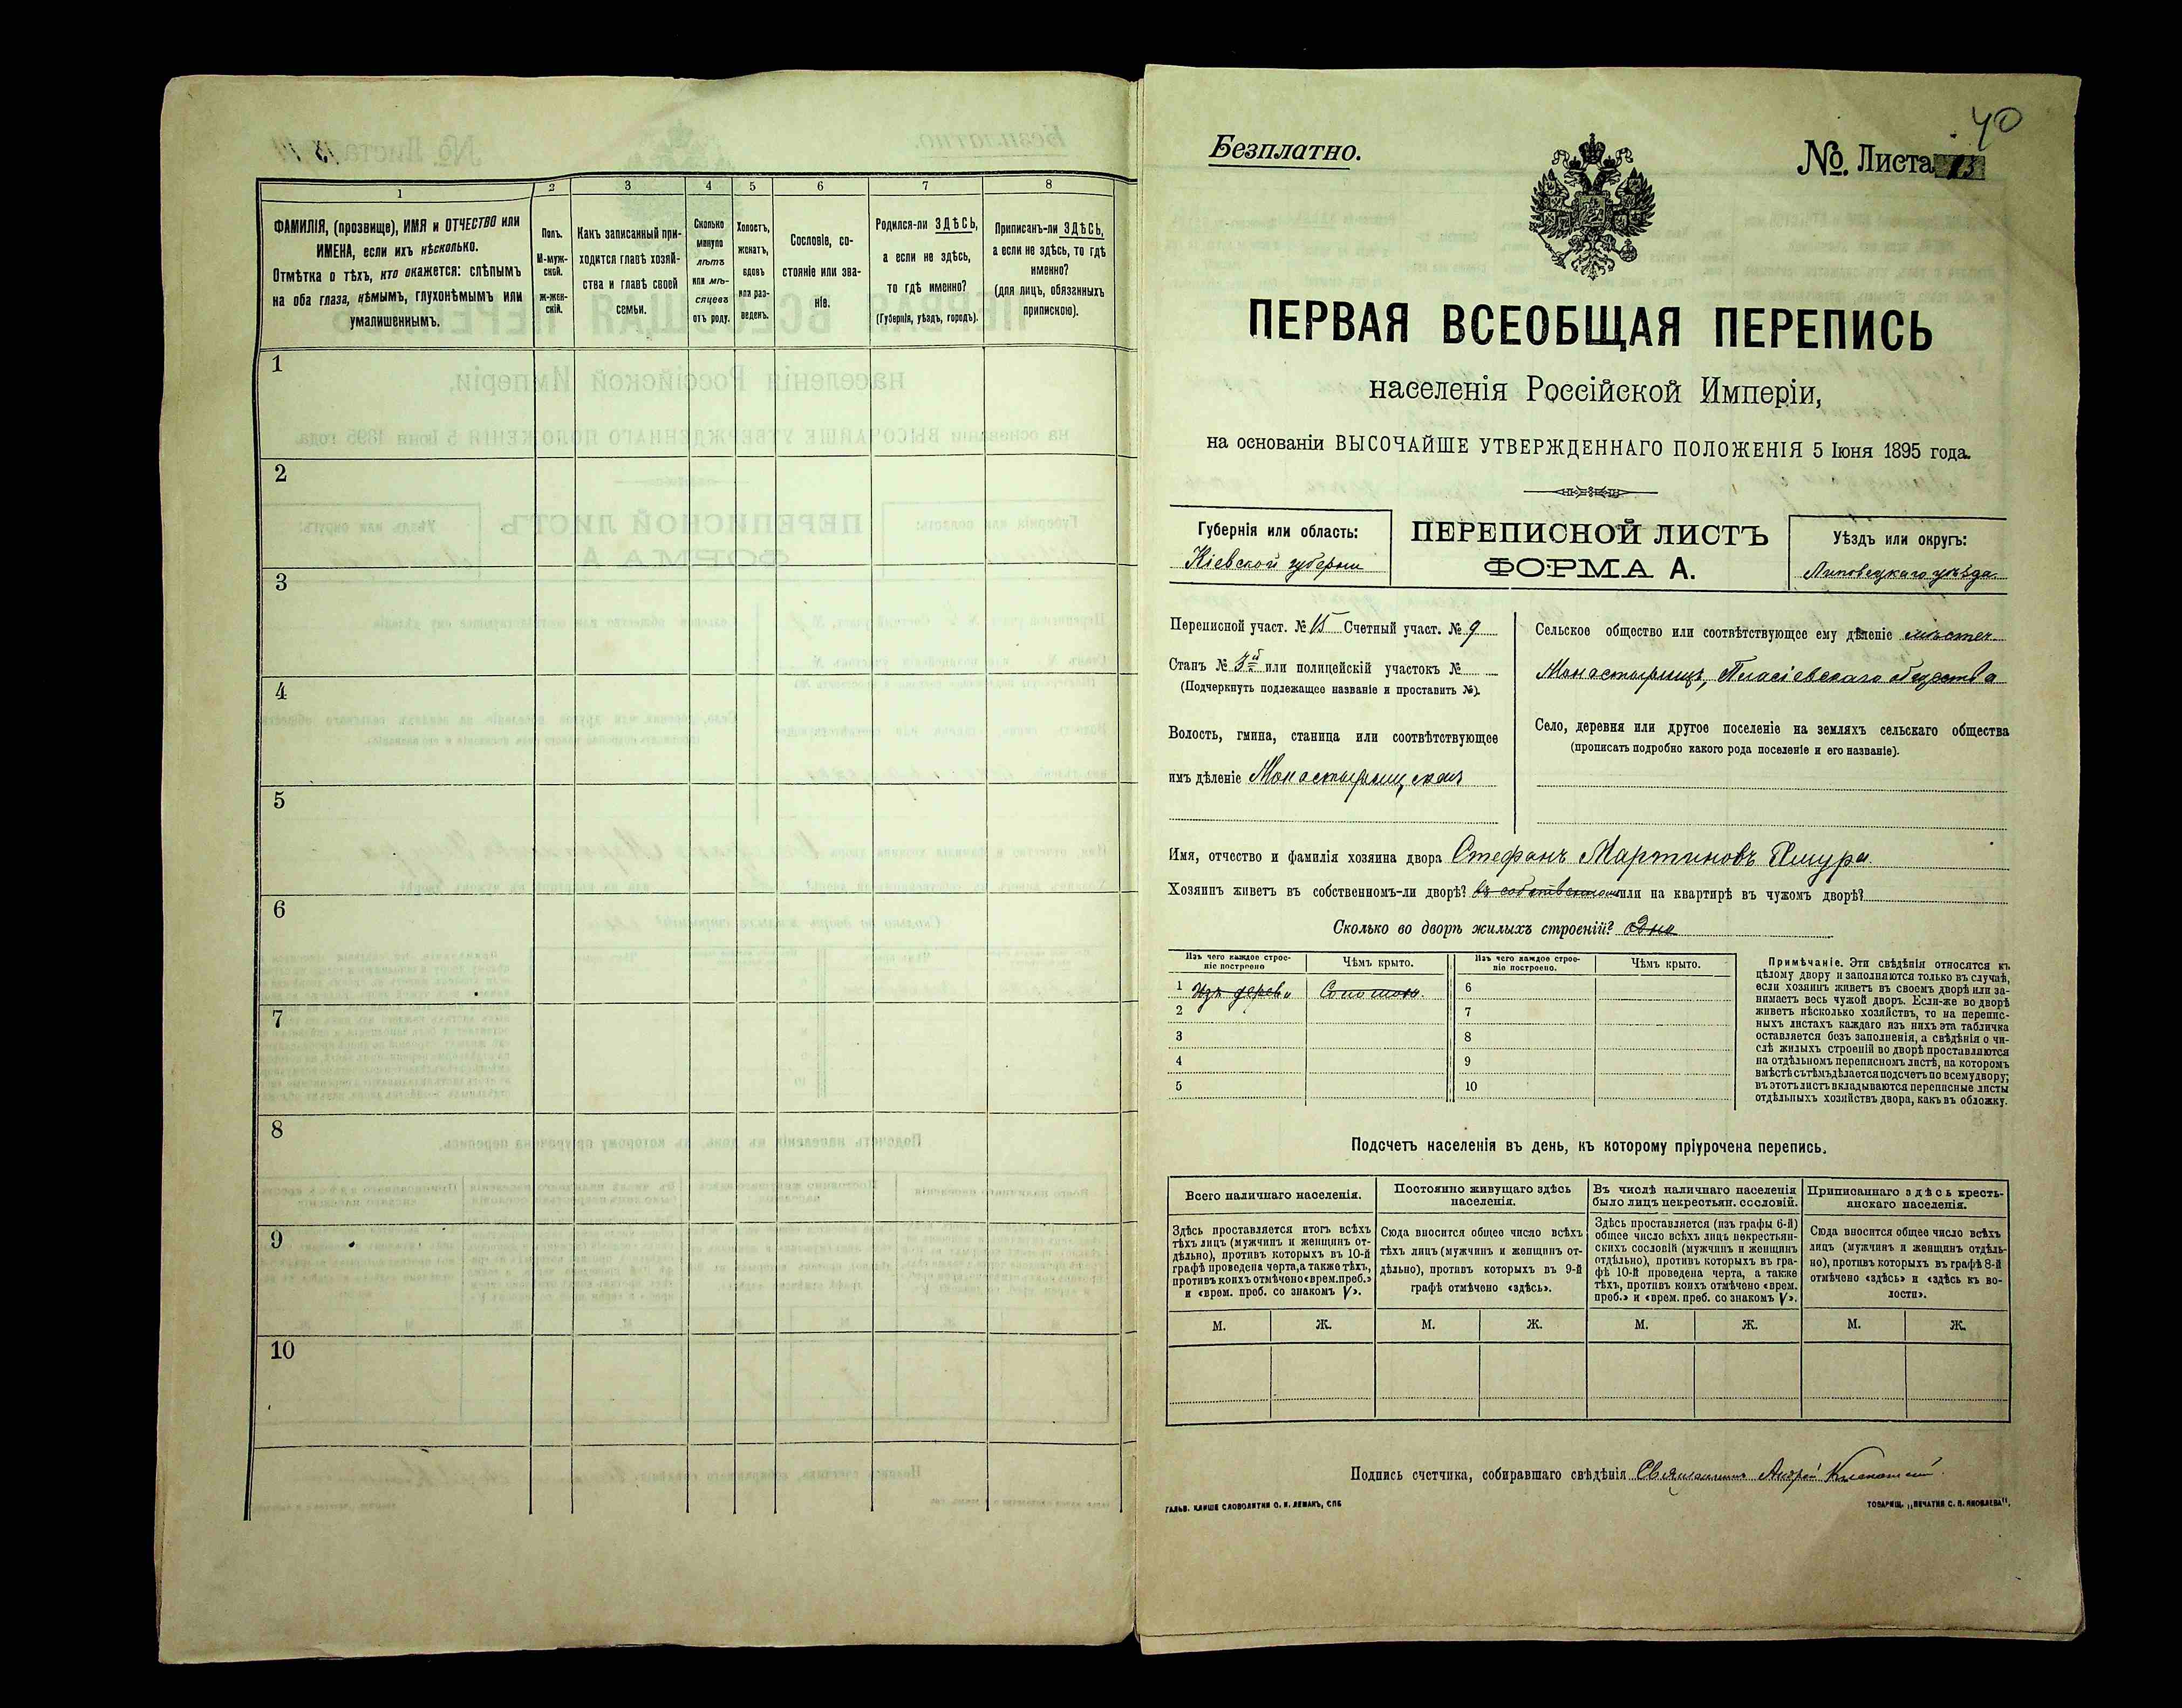 1
2
3
4
5
6
7
8
ФАМИЛІЯ, (прозвище), ИМЯ и ОТЧЕСТВО или
ИМЕНА, если ихъ нѣсколько.
Отмѣтка о тѣхъ, кто окажется: слѣпымъ
на оба глаза, нѣмымъ, глухонѣмымъ или
умалишеннымъ.
Полъ.
М-муж-
ской.
ж-жен-
скій.
Какъ записанный при-
ходится главѣ хозяй-
ства и главѣ своей
семьи.
Сколько
минуло
лѣтъ
или мѣ-
сяцевъ
отъ роду.
Холостъ,
женатъ,
вдовъ
или раз-
веденъ.
Сословіе, со-
стояніе или зва-
ніе.
Родился-ли ЗДѢСЬ,
а если не здѣсь,
то гдѣ именно?
(Губернія, уѣздъ, городъ).
Приписанъ-ли ЗДѢСЬ,
а если не здѣсь, то гдѣ
именно?
(для лицъ, обязанныхъ
припискою).
1
2
3
4
5
6
7
8
9
10
40
Безплатно.
№. Листа 13
ПЕРВАЯ ВСЕОБЩАЯ ПЕРЕПИСЬ
населенія Россійской Имперіи,
на основаніи ВЫСОЧАЙШЕ УТВЕРЖДЕННАГО ПОЛОЖЕНІЯ 5 Іюня 1895 года.
Губернія или область:
Кіевской губерніи
ПЕРЕПИСНОЙ ЛИСТЪ
ФОРМА А.
Уѣздъ или округъ:
Липовецкаго уѣзда
Переписной участ. № 15 Счетный участ. № 9
Станъ № 3й или полицейскій участокъ №
(Подчеркнуть подлежащее названіе и проставить №).
Волость, гмина, станица или соотвѣтствующее
имъ дѣленіе Монастырищская
Сельское общество или соотвѣтствующее ему дѣленіе мѣстеч.
Монастырищъ, общества
Село, деревня или другое поселеніе на земляхъ сельскаго общества
(прописать подробно какого рода поселеніе и его названіе).
Имя, отчество и фамилія хозяина двора Стефанъ Мартиновъ
Хозяинъ живетъ въ собственномъ-ли дворѣ? въ собственномъ или на квартирѣ въ чужомъ дворѣ?
Сколько во дворѣ жилыхъ строеній? одно
Изъ чего каждое строе-
ніе построено
Чѣмъ крыто.
Изъ чего каждое строе-
ніе построено.
Чѣмъ крыто.
1 Изъ дерева Соломою.
2
3
4
5
6
7
8
9
10
Примѣчаніе. Эти свѣдѣнія относятся къ
цѣлому двору и заполняются только въ случаѣ,
если хозяинъ живетъ въ своемъ дворѣ или за-
нимаетъ весь чужой дворъ. Если-же во дворѣ
живетъ нѣсколько хозяйствъ, то на перепис-
ныхъ листахъ каждаго изъ нихъ эта табличка
оставляется безъ заполненія, а свѣдѣнія о чи-
слѣ жилыхъ строеній во дворѣ проставляются
на отдѣльномъ переписномъ листѣ, на которомъ
вмѣстѣ съ тѣмъ дѣлается подсчетъ по всему двору;
въ этотъ листъ вкладываются переписные листы
отдѣльныхъ хозяйствъ двора, какъ въ обложку.
Подсчетъ населенія въ день, къ которому пріурочена перепись.
Всего наличнаго населенія.
Здѣсь проставляется итогъ всѣхъ
тѣхъ лицъ (мужчинъ и женщинъ от-
дѣльно), противъ которыхъ въ 10-й
графѣ проведена черта, а также тѣхъ,
противъ коихъ отмѣчено «врем. преб.»
и «врем. преб. со знакомъ V».
Постоянно живущаго здѣсь
населенія.
Сюда вносится общее число всѣхъ
тѣхъ лицъ (мужчинъ и женщинъ от-
дѣльно), противъ которыхъ въ 9-й
графѣ отмѣчено «здѣсь».
Въ числѣ наличнаго населенія
было лицъ некрестьян. сословій.
Здѣсь проставляется (изъ графы 6-й)
общее число всѣхъ лицъ некрестьян-
скихъ сословій (мужчинъ и женщинъ
отдѣльно), противъ которыхъ въ гра-
фѣ 10-й проведена черта, а также
тѣхъ, противъ коихъ отмѣчено «врем.
преб.» и «врем. преб. со знакомъ V».
Приписаннаго здѣсь кресть-
янскаго населенія.
Сюда вносится общее число всѣхъ
лицъ (мужчинъ и женщинъ отдѣль-
но), противъ которыхъ въ графѣ 8-й
отмѣчено «здѣсь» и «здѣсь къ во-
лости».
М. Ж. М. Ж. М. Ж. М. Ж.
Подпись счетчика, собиравшаго свѣдѣнія Священникъ Андрей
ГАЛЬВ. КЛИШЕ СЛОВОЛИТНИ О. И. ЛЕМАНЪ, СПБ
ТОВАРИЩ. „ПЕЧАТНЯ С. П. ЯКОВЛЕВА".